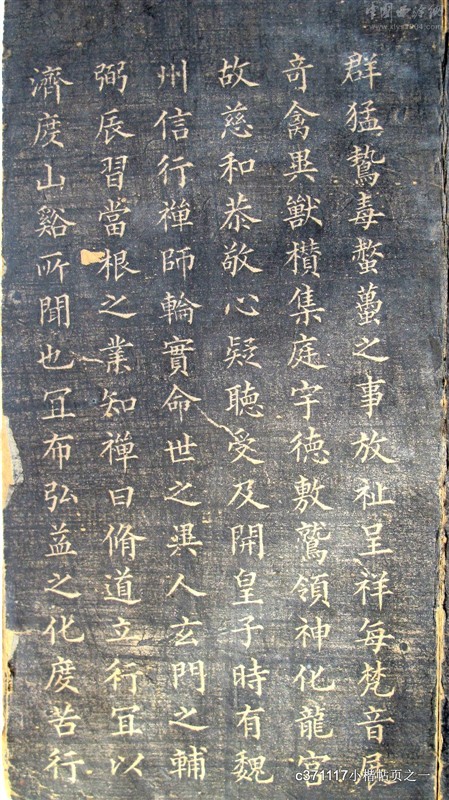 群猛鷙毒螫蠆之事放祉呈祥每梵音展
奇禽異獸攢集庭宇徳敷鷲領神化龍宮
故慈和恭敬心疑聽受及開皇子時有魏
州信行禅師輪實命世之異人玄門之輔
弼辰習當根之業知禅曰脩道立行冝以
濟度山谿所聞也冝布弘益之化度苦行
中国西泠网
www.xlys1904.com
c371117小楷帖页之一